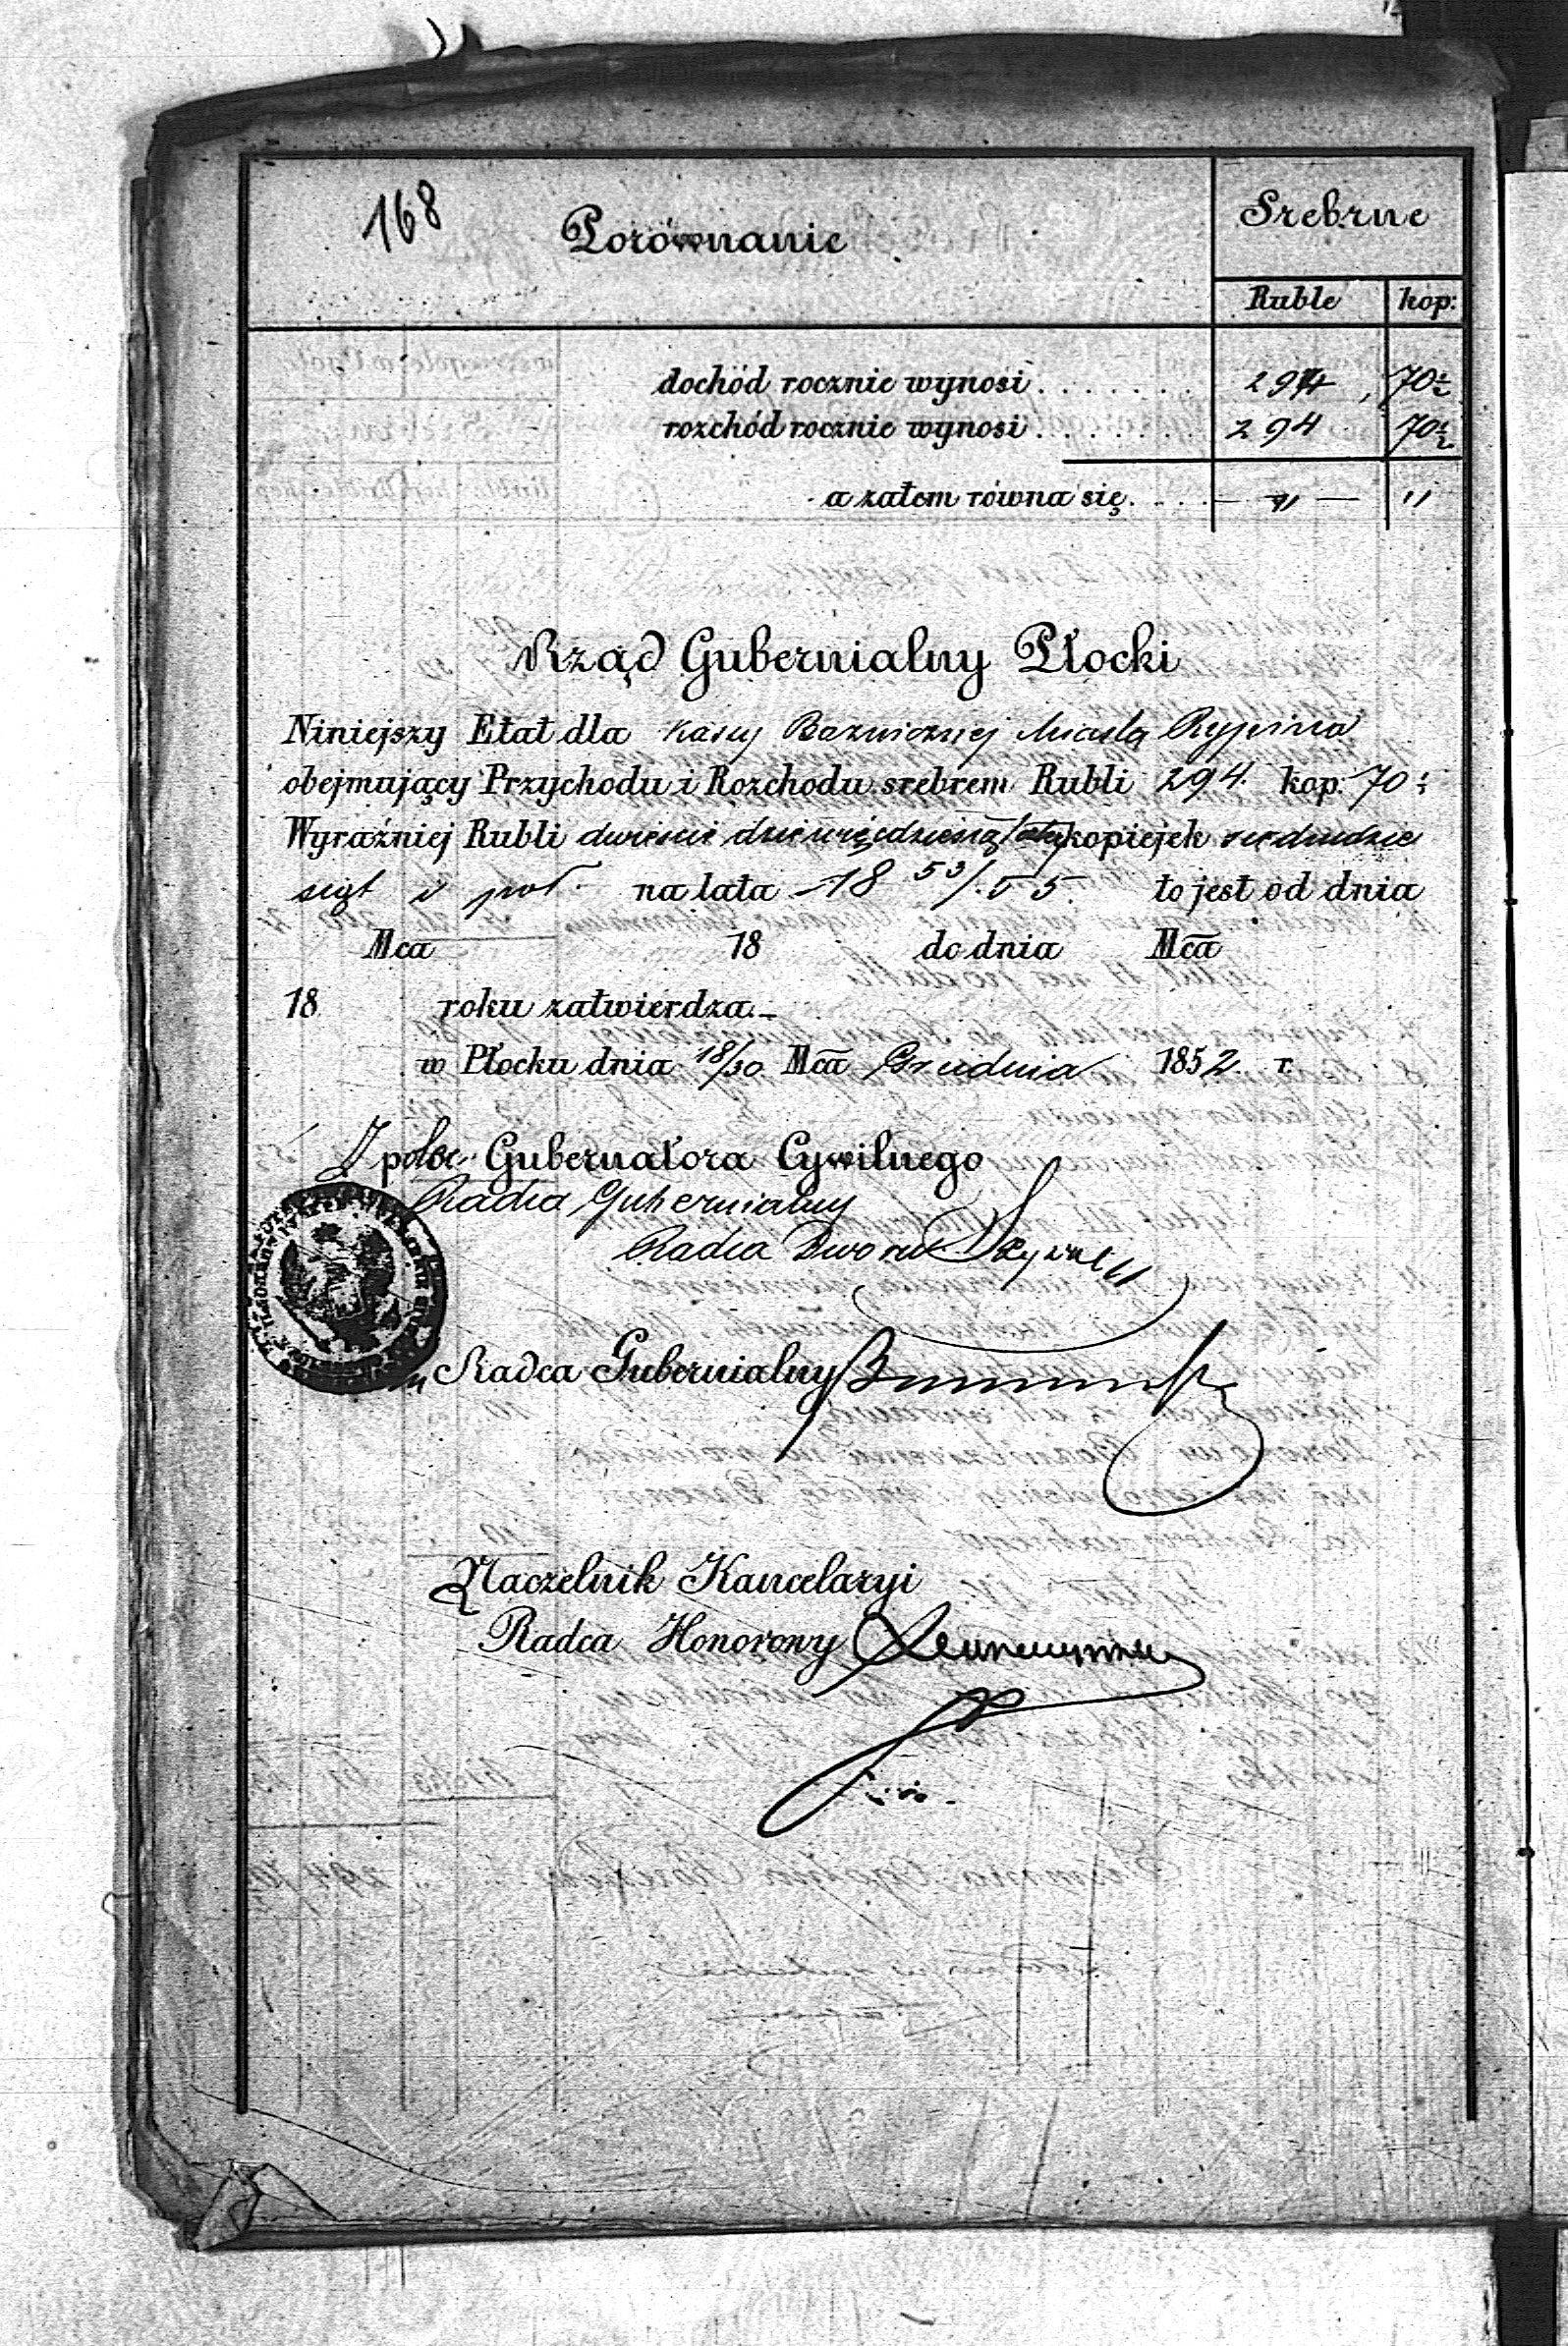 168
Porównanie
Srebrne
Ruble kop:
dochód rocznie wynosi . . . . . . . 294 70½
rozchód rocznie wynosi . . . . . . . 294 70½
a zatem równa się. . . . — " — "
Rząd Gubernialny Płocki
Niniejszy Etat dla Kassy Bożniczney Miasta Rypina
obejmujący Przychodu i Rozchodu srebrem Rubli 294. kop: 70½
Wyraźniej Rubli dwieście dziewięćdziesiąt cztery kopiejek siedmdzie
siąt i poł. na lata 18 53/55. to jest od dnia
Mca 18 do dnia Mca
18 roku zatwierdza.
w Płocku dnia 18/30 Mca Grudnia 1852. r.
Z polec. Gubernatora Cywilnego
Radca Gubernialny
Radca Dworu
Radca Gubernialny
Naczelnik Kancelaryi
Radca Honorowy